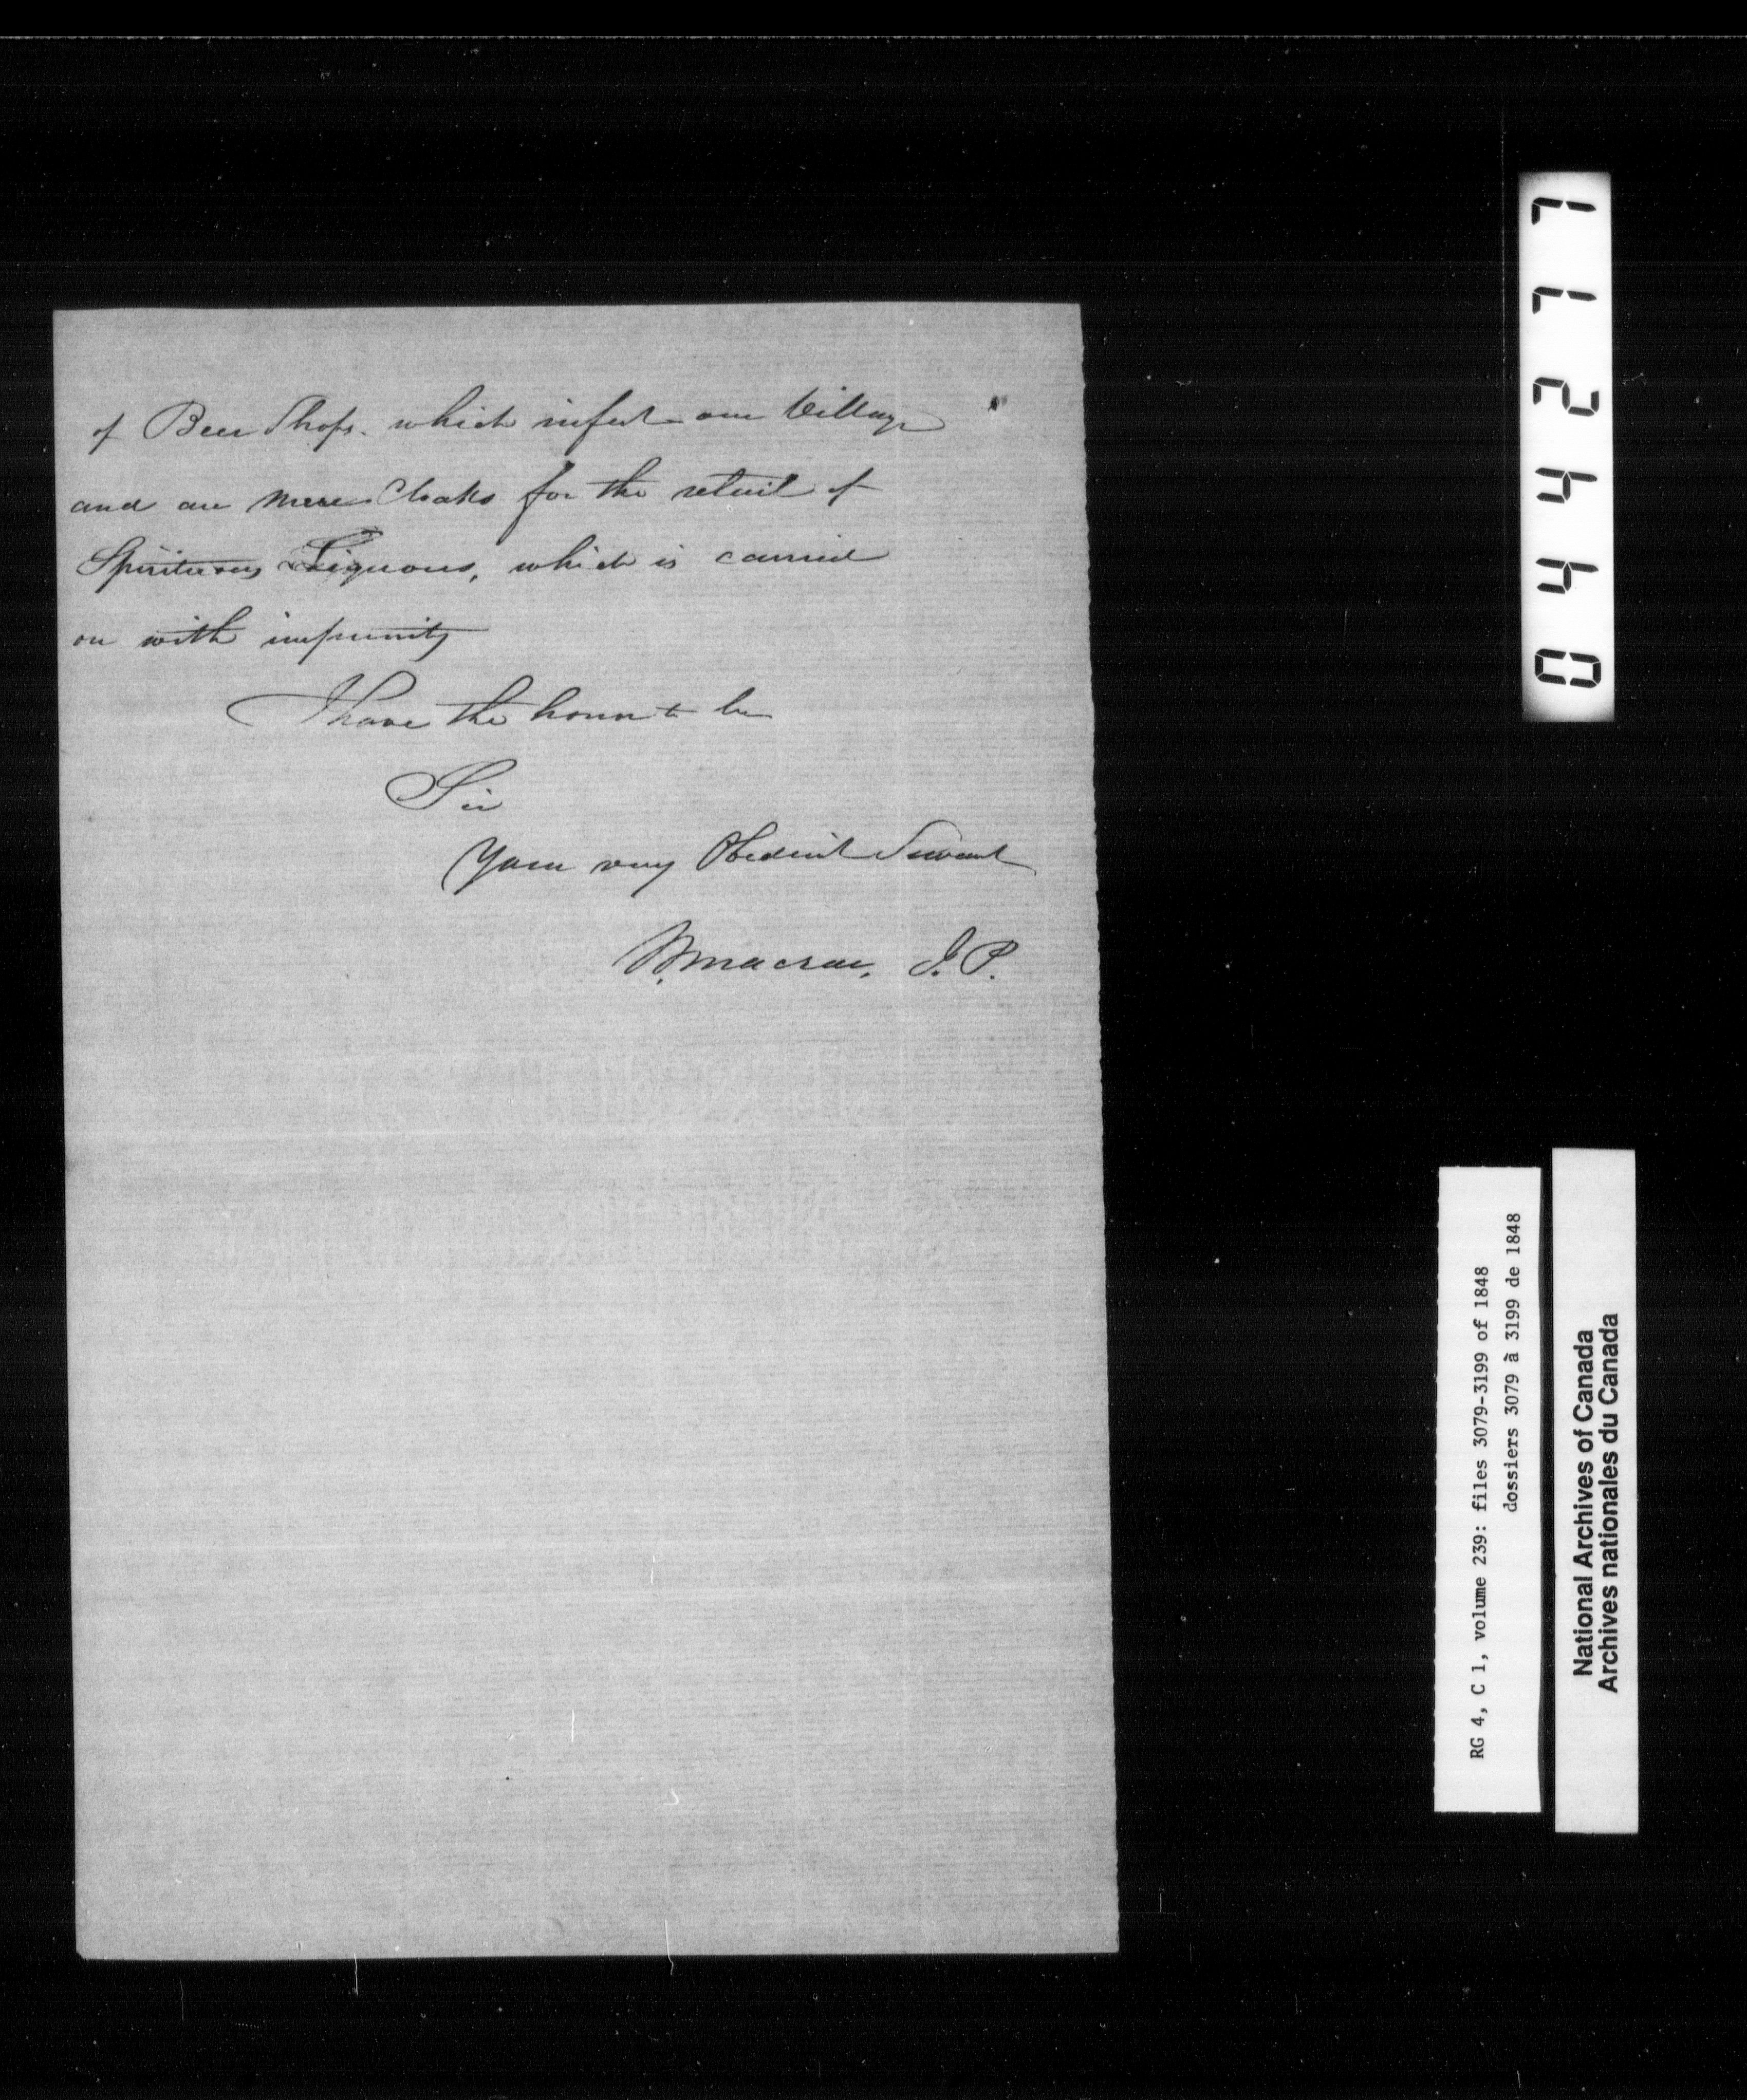 of Beer Shops. which infest our Village
and are mere Cloaks for the retail of
Spirituous Liquors, which is carried
on with impunity
I have the honor to be
Sir
Your very Obedient Servant
W. Macrae, J.P.
044277
RG 4, C 1, volume 239: files 3079-3199 of 1848
dossiers 3079 à 3199 de 1848
National Archives of Canada
Archives nationales du Canada